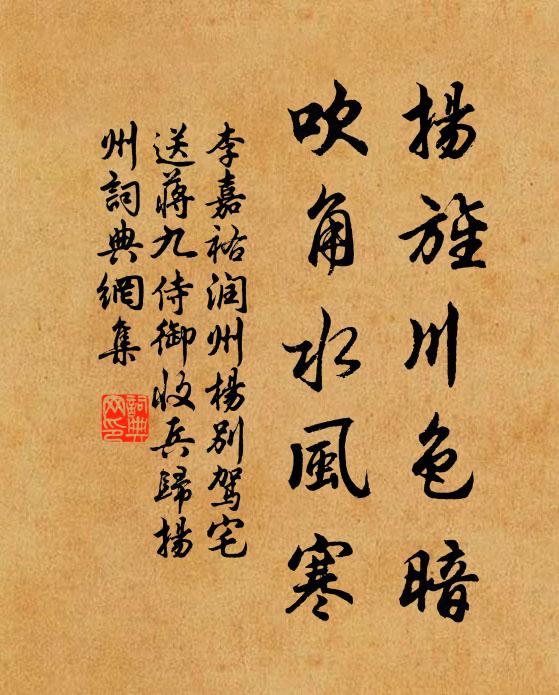 揚旌川色暗
吹角水風寒
李嘉祐润州楊别駕宅
送蔣九侍御收兵歸揚
州詞典網集
詞典
网印